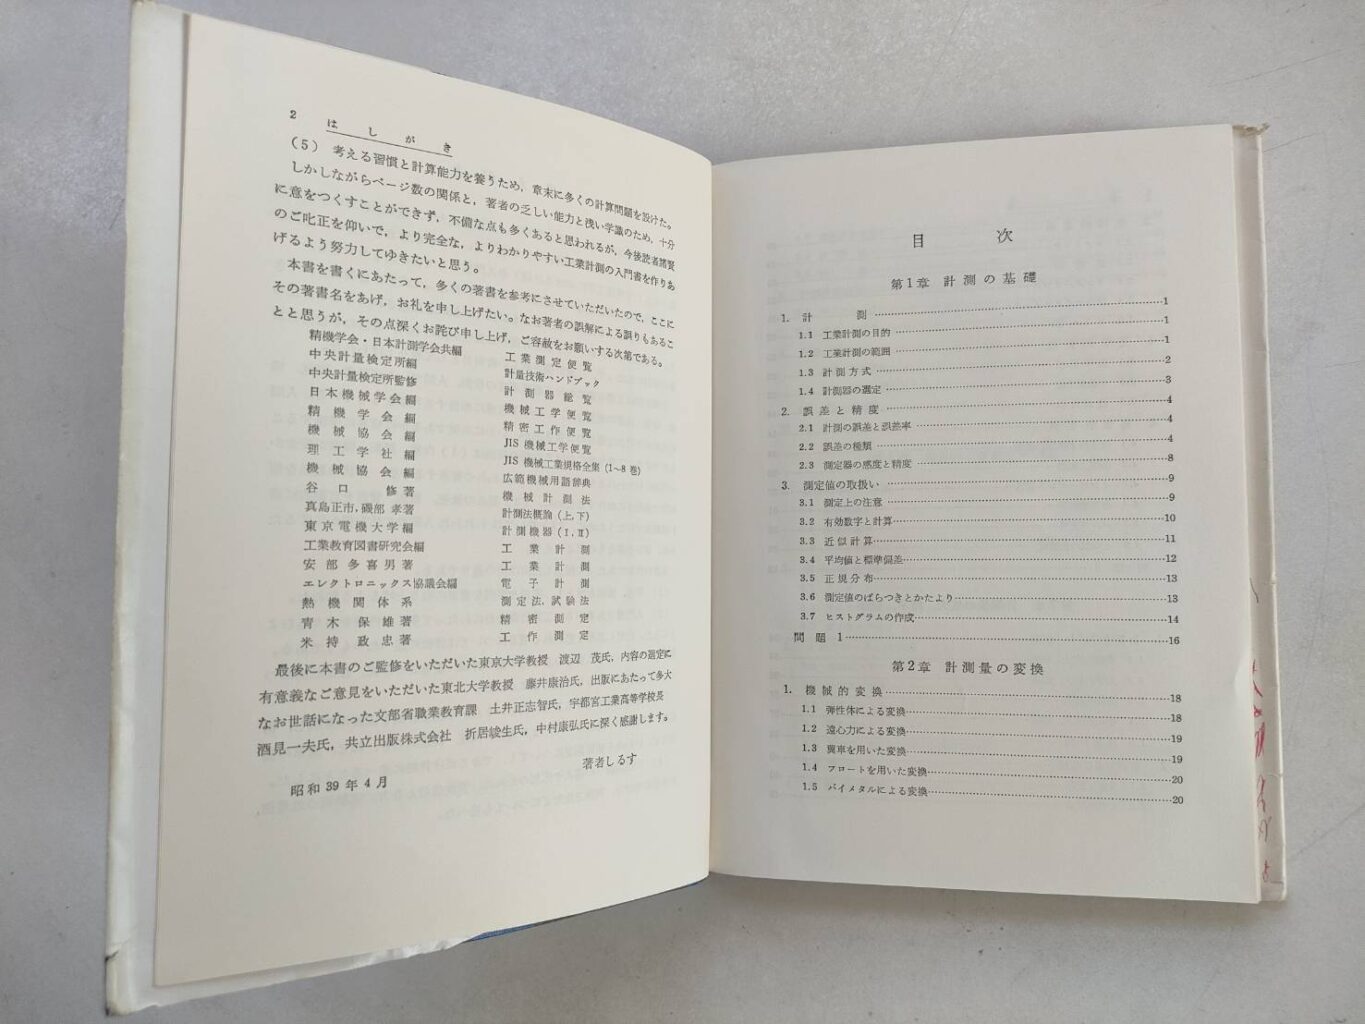 2 はしがき
(5) 考える習慣と計算能力を養うため，章末に多くの計算問題を設けた。
しかしながらページ数の関係と，著者の乏しい能力と浅い学識のため，十分
に意をつくすことができず，不備な点も多くあると思われるが，今後読者諸賢
のご叱正を仰いで，より完全な，よりわかりやすい工業計測の入門書を作りあ
げるよう努力してゆきたいと思う。
本書を書くにあたって，多くの著書を参考にさせていただいたので，ここに
その著書名をあげ，お礼を申し上げたい。なお著者の誤解による誤りもあるこ
とと思うが，その点深くお詫び申し上げ，ご容赦をお願いする次第である。
精機学会・日本計測学会共編 工業測定便覧
中央計量検定所編 計量技術ハンドブック
中央計量検定所監修 計測器総覧
日本機械学会編 機械工学便覧
精機学会編 精密工作便覧
機械協会編 JIS 機械工学便覧
理工学社編 JIS 機械工業規格全集 (1～8 巻)
機械協会編 広範機械用語辞典
谷口修著 機械計測法
真島正市，磯部孝著 計測法概論 (上，下)
東京電機大学編 計測機器 (I，II)
工業教育図書研究会編 工業計測
安部多喜男著 工業計測
エレクトロニックス協議会編 電子計測
熱機関体系 測定法，試験法
青木保雄著 精密測定
米持政忠著 工作測定
最後に本書のご監修をいただいた東京大学教授 渡辺 茂氏，内容の選定に
有意義なご意見をいただいた東北大学教授 藤井康治氏，出版にあたって多大
なお世話になった文部省職業教育課 土井正志智氏，宇都宮工業高等学校長
酒見一夫氏，共立出版株式会社 折居峻生氏，中村康弘氏に深く感謝します。
著者しるす
昭和 39 年 4 月
目次
第1章 計測の基礎
1. 計測 1
1.1 工業計測の目的 1
1.2 工業計測の範囲 1
1.3 計測方式 2
1.4 計測器の選定 3
2. 誤差と精度 4
2.1 計測の誤差と誤差率 4
2.2 誤差の種類 4
2.3 測定器の感度と精度 8
3. 測定値の取扱い 9
3.1 測定上の注意 9
3.2 有効数字と計算 10
3.3 近似計算 11
3.4 平均値と標準偏差 12
3.5 正規分布 13
3.6 測定値のばらつきとかたより 13
3.7 ヒストグラムの作成 14
問題 1 16
第2章 計測量の変換
1. 機械的変換 18
1.1 弾性体による変換 18
1.2 遠心力による変換 19
1.3 翼車を用いた変換 19
1.4 フロートを用いた変換 20
1.5 バイメタルによる変換 20